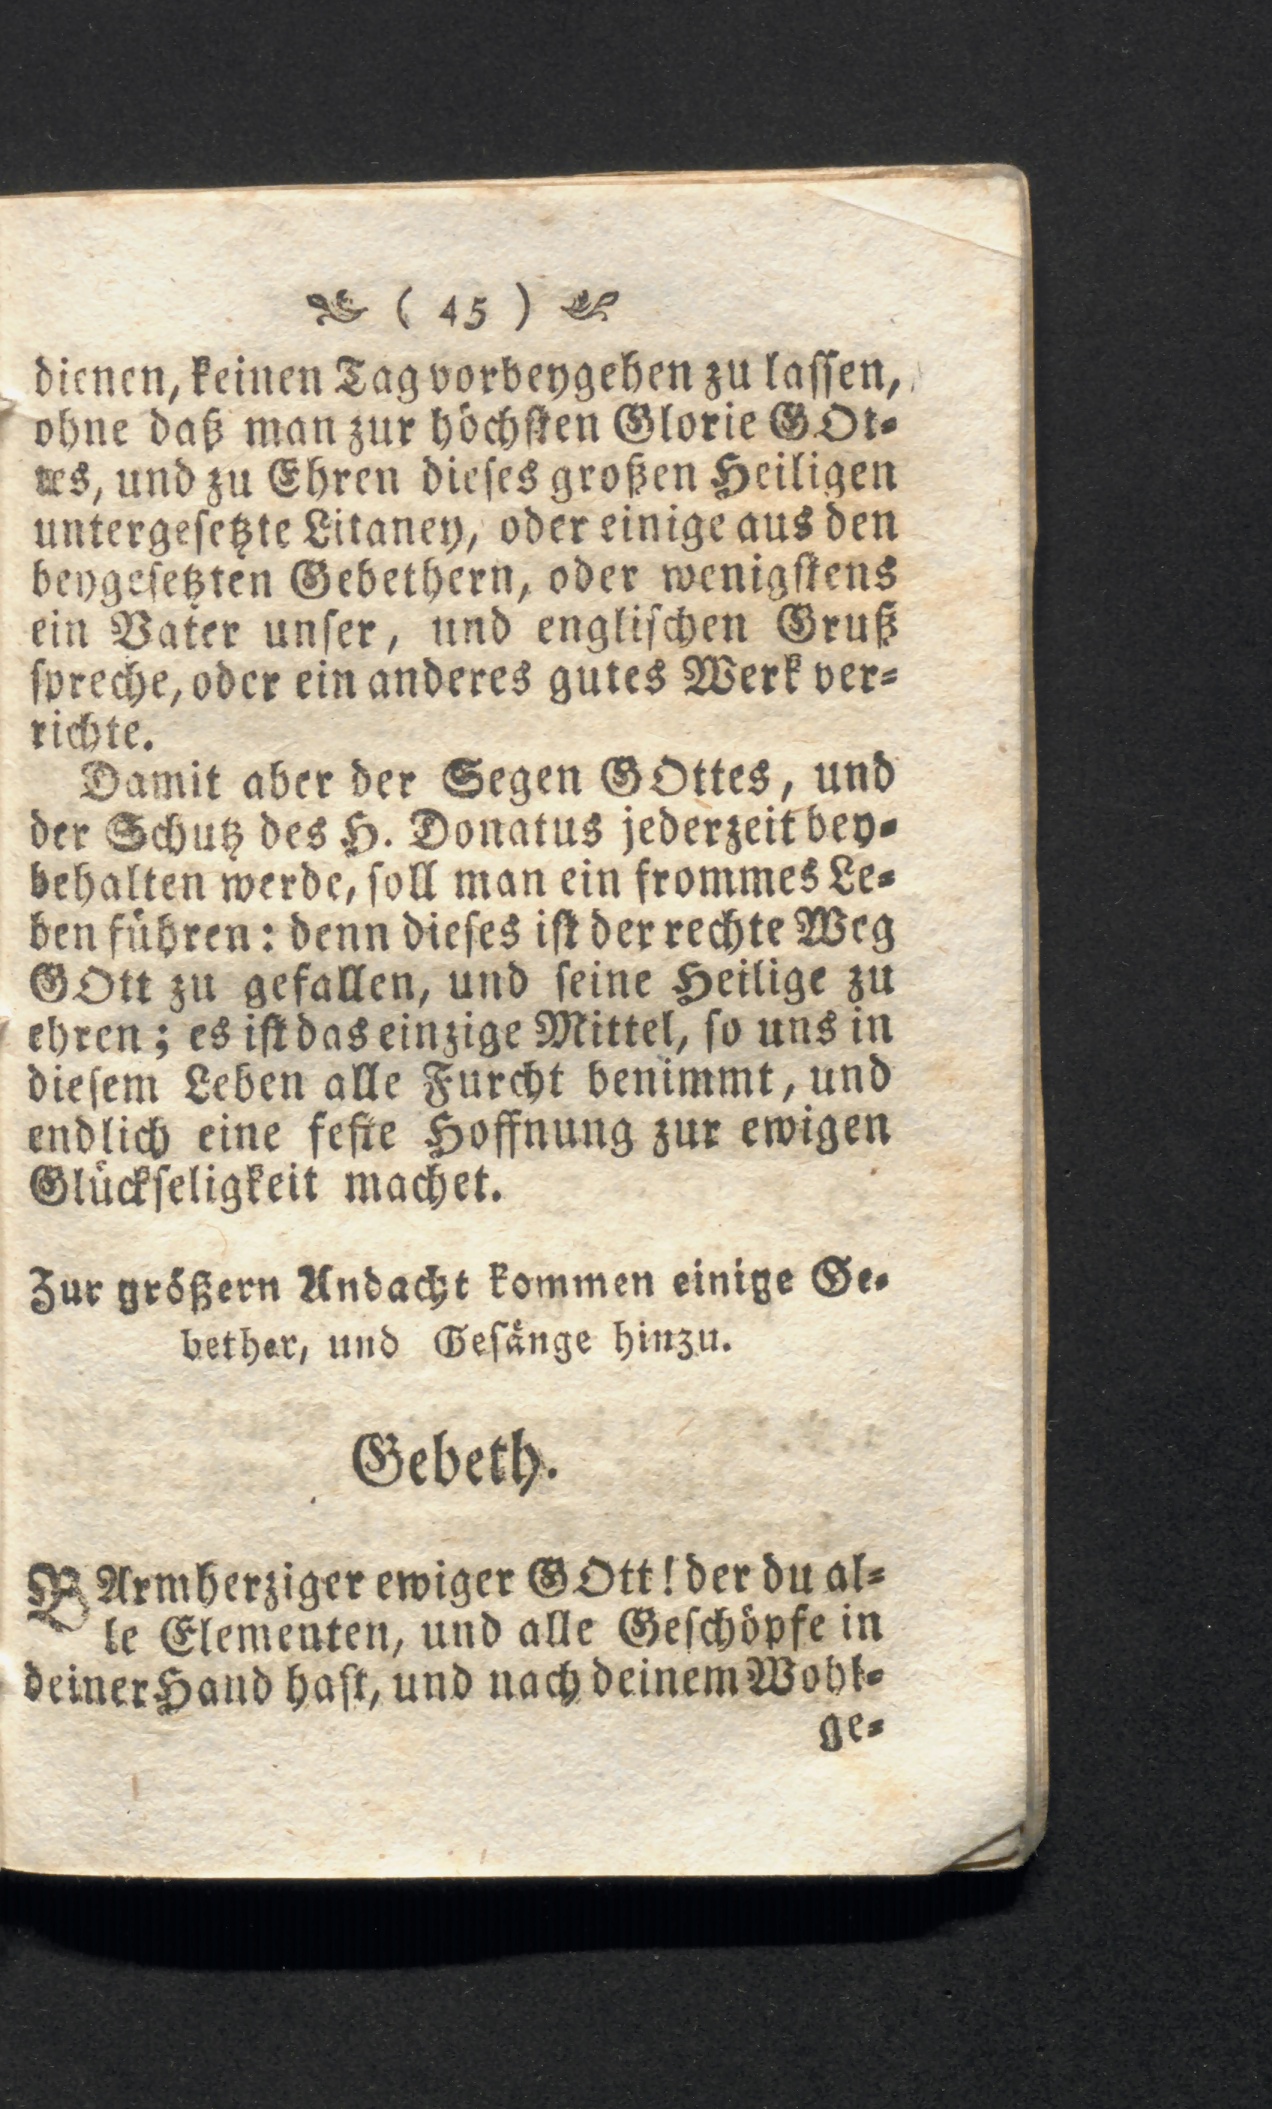 ( 45 )
dienen, keinen Tag vorbeygehen zu lassen,
ohne daß man zur höchsten Glorie GOt-
tes, und zu Ehren dieses großen Heiligen
untergesetzte Litaney, oder einige aus den
beygesetzten Gebethern, oder wenigstens
ein Vater unser, und englischen Gruß
spreche, oder ein anderes gutes Werk ver-
richte.
Damit aber der Segen GOttes, und
der Schutz des H. Donatus jederzeit bey-
behalten werde, soll man ein frommes Le-
ben führen: denn dieses ist der rechte Weg
GOtt zu gefallen, und seine Heilige zu
ehren; es ist das einzige Mittel, so uns in
diesem Leben alle Furcht benimmt, und
endlich eine feste Hoffnung zur ewigen
Glückseligkeit machet.
Zur größern Andacht kommen einige Ge-
bether, und Gesänge hinzu.
Gebeth.
BArmherziger ewiger GOtt! der du al-
le Elementen, und alle Geschöpfe in
deiner Hand hast, und nach deinem Wohl-
ge-